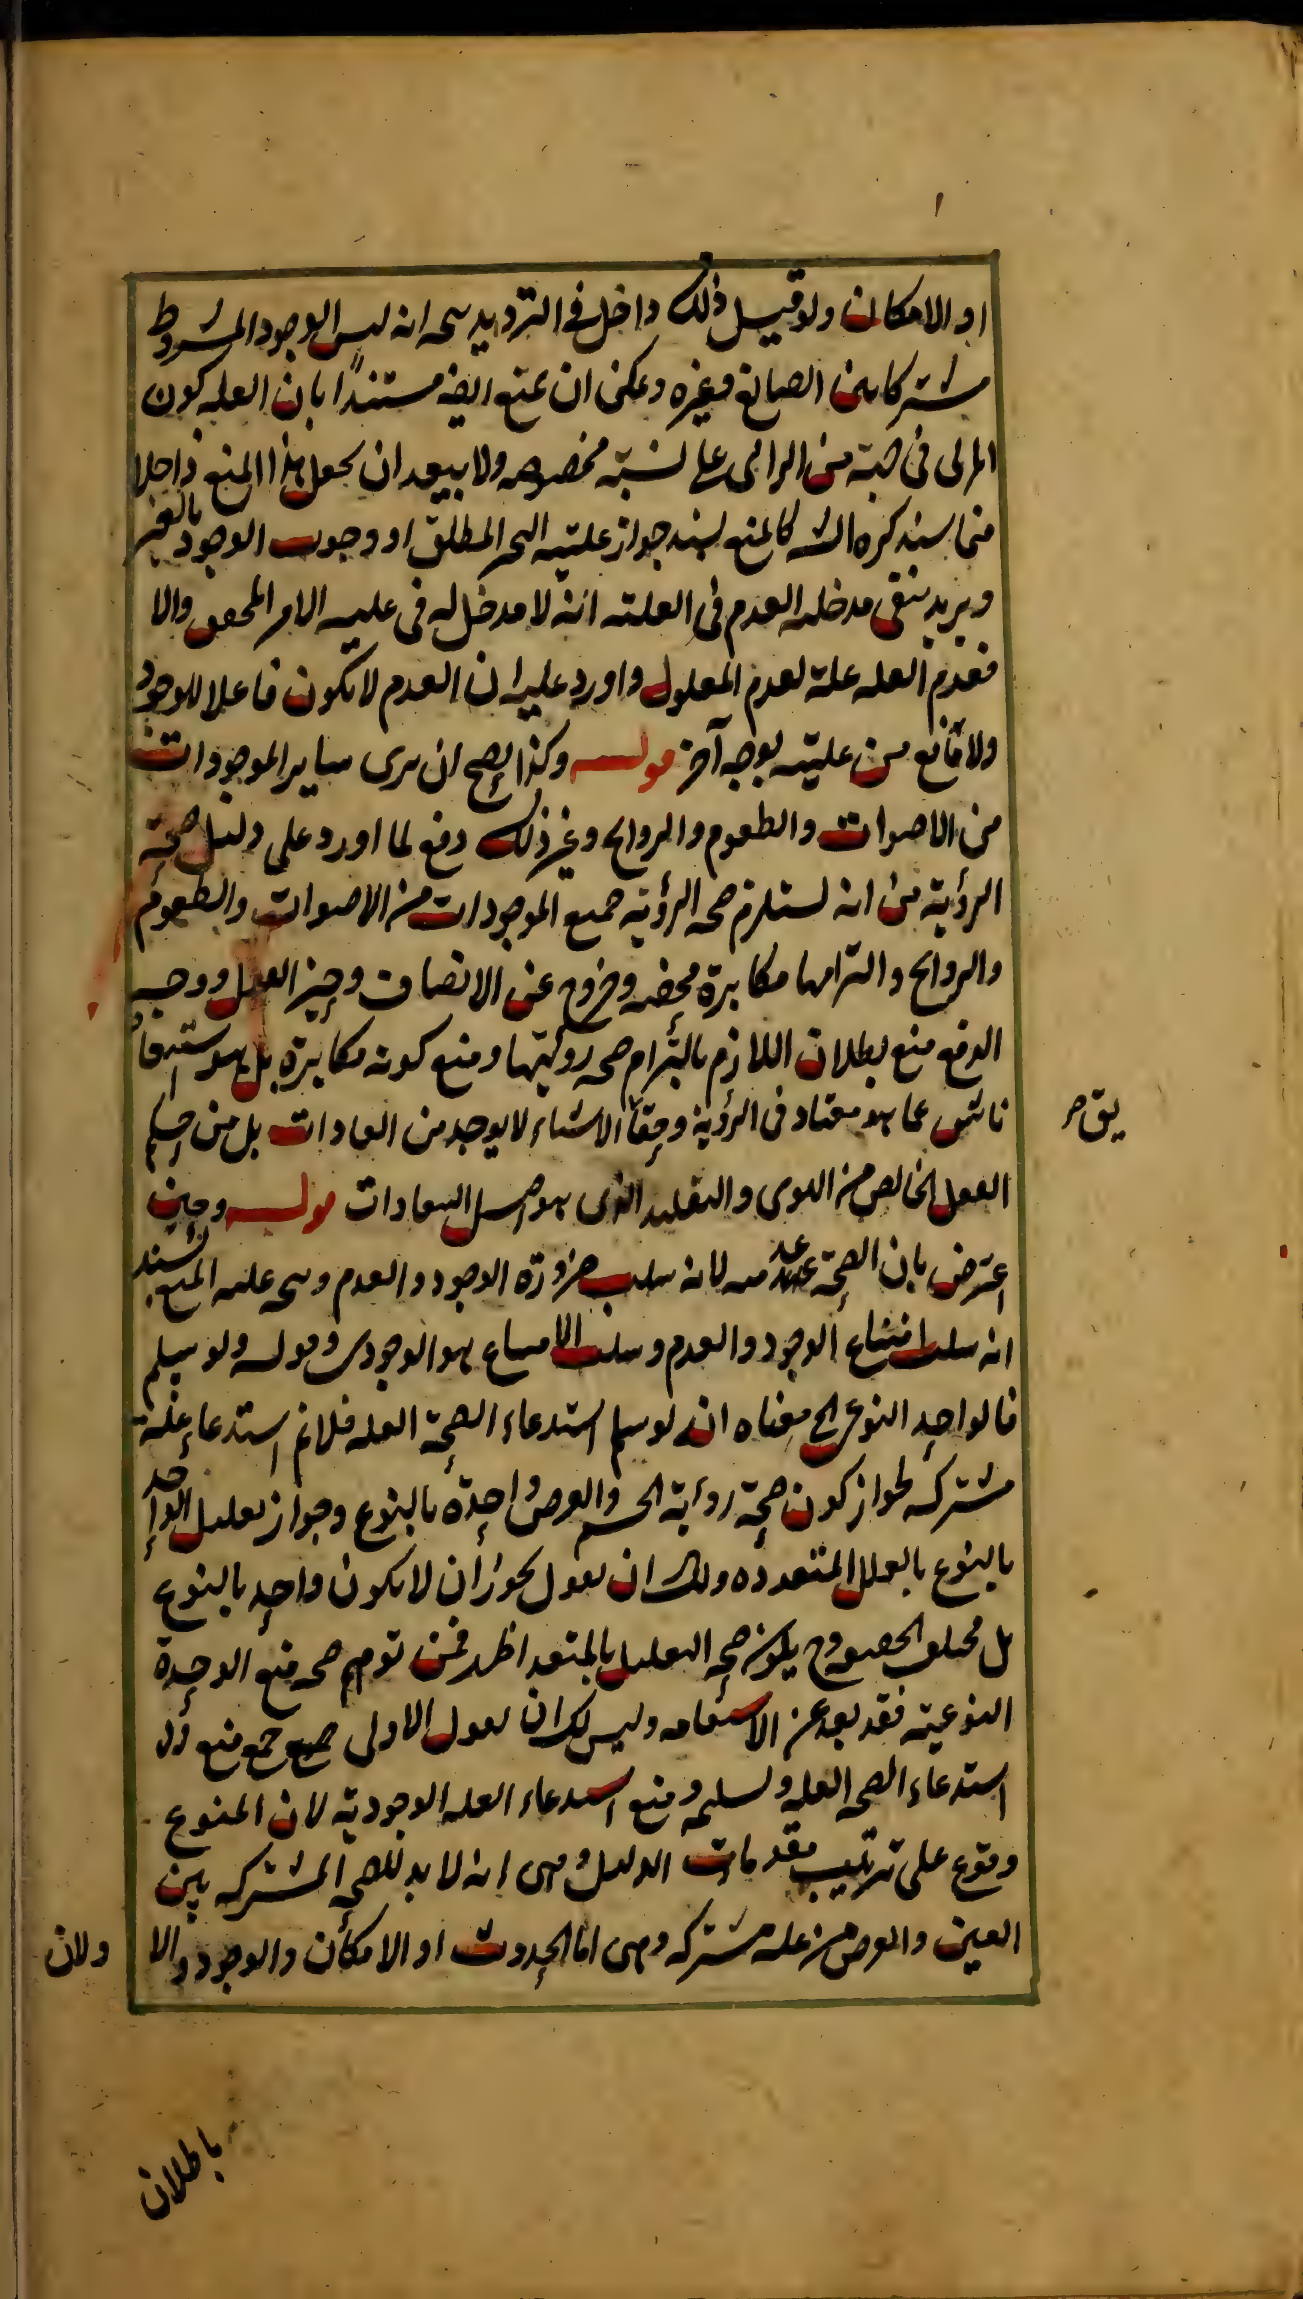 او الامكان ولو قيل ذلك داخل فى الترديد يتجه انه ليس الوجود المشروط
مشتركا بين الصانع وغيره ويمكن ان يمنع ايضه مستندًا بان العله كون
المرئى فى جهة من الرائى على نسبة مخصوصه ولا يبعد ان يجعل هذا المنع داخلا
فيما سنذكره الش كالمنع بسند جواز علية التحيز المطلق او وجوب الوجود بالغير
ويريد بنفى مدخلية العدم فى العلته انه لا مدخل له فى علية الامر المحقق والا
فعدم العله علة لعدم المعلول واورد عليه ان العدم لا يكون فاعلا للوجود
ولا مانع من عليته بوجه آخر قوله وكذا يصح ان يرى ساير الموجودات
من الاصوات والطعوم والروايح وغير ذلك دفع لما اورد على دليل صحة
الرؤية من انه يستلزم صحه الرؤية جميع الموجودات من الاصوات والطعوم
والروايح والتزامها مكابرة محضه وخروج عن الانصاف وحيز العقل ووجه
الدفع منع بطلان اللازم بالتزام صحه رؤيتها ومنع كونه مكابرة بل هو استبعاد
ناش عما هو معتاد فى الرؤية وحقايق الاشياء لا يوجد من العادات بل من احكام
العقل الخالص من الهوى والتقليد الذى هو اصل السعادات قوله وحين
اعترض بان الصحة عدميه لانه سلب ضرورة الوجود والعدم ويتجه عليه المنع بسند
انه سلب امتناع الوجود والعدم وسلب الامتناع هو الوجودى وقوله ولو سلم
فالواحد النوعى الخ معناه انه لو سلم استدعاء الصحة العله فلانم استدعاء علة
مشتركه لجواز كون صحة رواية الجسم والعرض واحدة بالنوع وجواز تعليل الواحد
بالنوع بالعلل المتعدده ولك ان تقول يجوز ان لا يكون واحدا بالنوع
بل مختلف الحقيقه وح يكون صحة التعليل بالمتعدد اظهر فمن توهم صحه منع الوحدة
النوعية فقد بعد عن الاستقامه وليس لك ان تقول الاولى جمع منع
استدعاء الصحه العله وتسليمه ومنع استدعاء العله الوجودية لان المنوع
وقوع على ترتيب مقدمات الدليل وهى انه لا بد للصحه المشتركه بين
العين والعرض من علة مشتركه وهى اما الحدوث او الامكان والوجود والا
يق م
ولان
باطلان